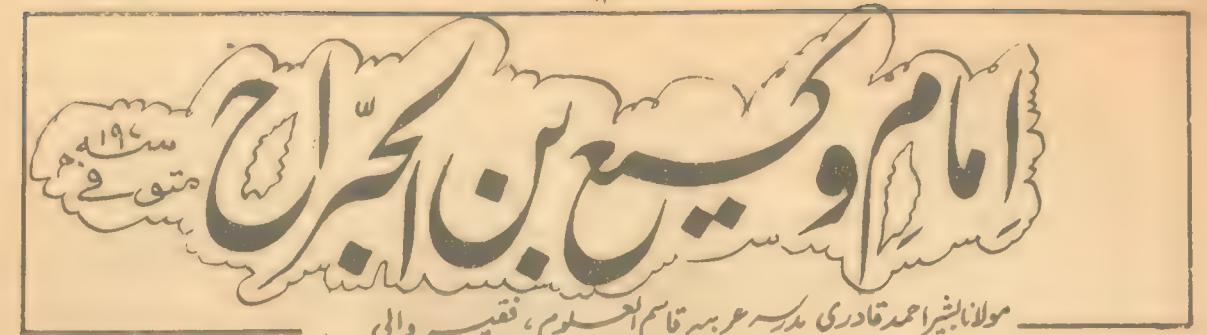 امام وکیع بن الجرّاح
متوفی سنہ ۱۹۷ھ
مولانا بشیر احمد قادری مدرسہ عربیہ قاسم العلوم، فقیر والی